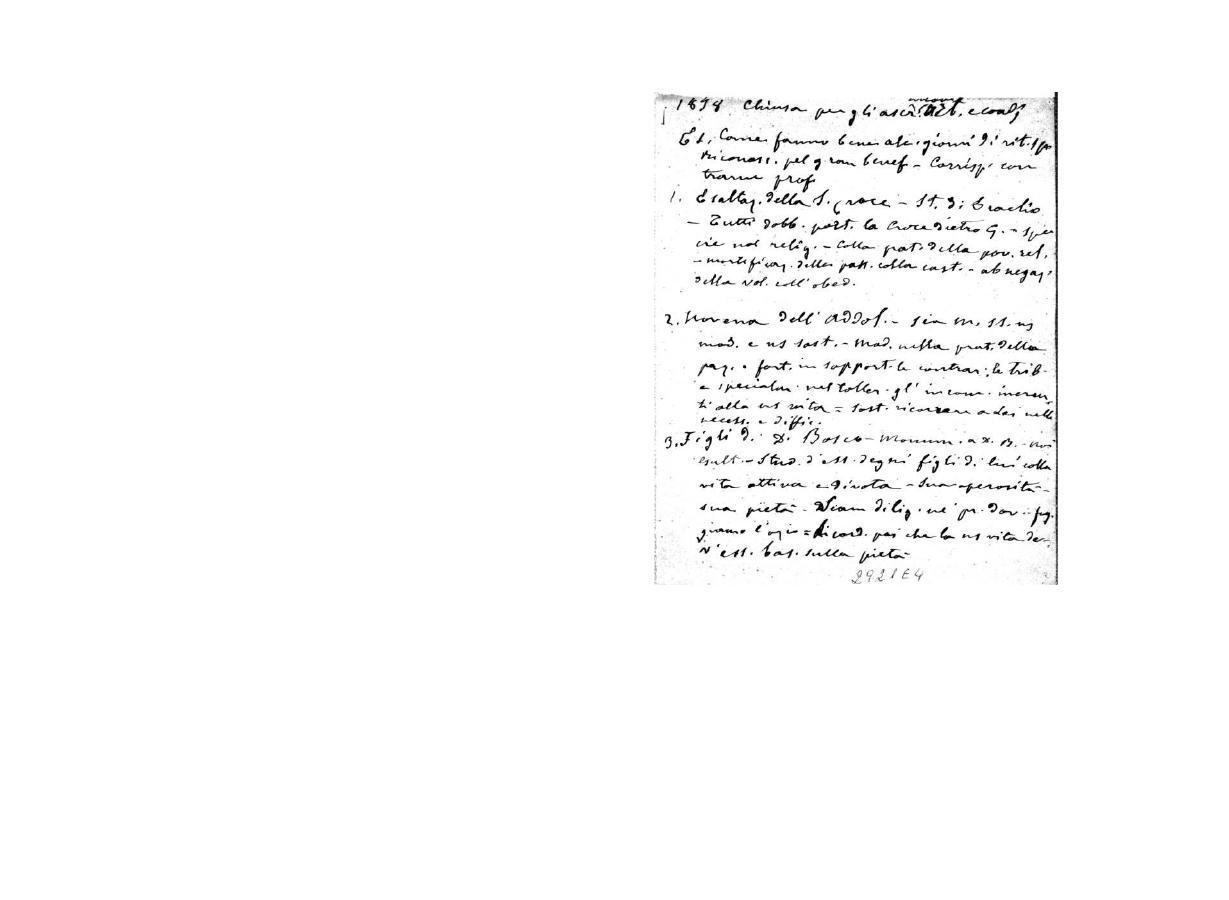 1898 Chiusa per gli ascr. e coad.
Es. Come fanno bene alc. giorni di rit. sp.
Riconosc. pel gran benef - Corrisp. con
trarne prof.
1. Esaltaz. della S. Croce - St. di Eraclio
- Tutti dobb. port. la Croce dietro G. - spe
cie noi relig. - Colla prat. della pov. rel.
- mortificaz. delle pass. colla cast. - abnegaz.
della vol. coll'obed.
2. Novena dell'Addol. - sia M. SS. ns
mod. e ns sost. - Mod. nella prat. della
paz. e fort. in sopport. le contrar. le trib.
e specialm. nel toller. gl'incom. ineren
ti alla ns vita = sost. ricorrere a Lei nelle
necess. e diffic.
3. Figli di D. Bosco - Monum. a D. B. - noi
esult. - Stud. d'ess. degni figli di lui colla
vita attiva e divota - sua operosità -
sua pietà - Siam dilig. ne' pr. dov. - fug
giamo l'ozio = Ricord. poi che la ns vita de
v'ess. bas. sulla pietà
2921E4